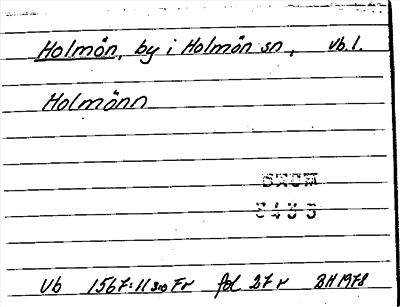 Holmön, by i Holmön sn, vb.l.
Holmönn
Vb 1567:11 Fr fol 27 r BH 1978